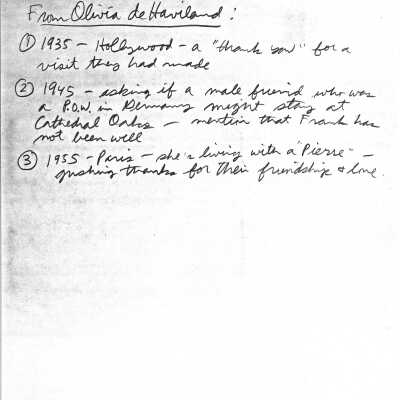 From Olivia de Haviland :
① 1935 – Hollywood – a "thank you" for a
visit they had made
② 1945 – asking if a male friend who was
a P.O.W. in Germany might stay at
Cathedral Oaks – mention that Frank has
not been well
③ 1955 – Paris – she's living with a "Pierre" –
gushing thanks for their friendship & love.